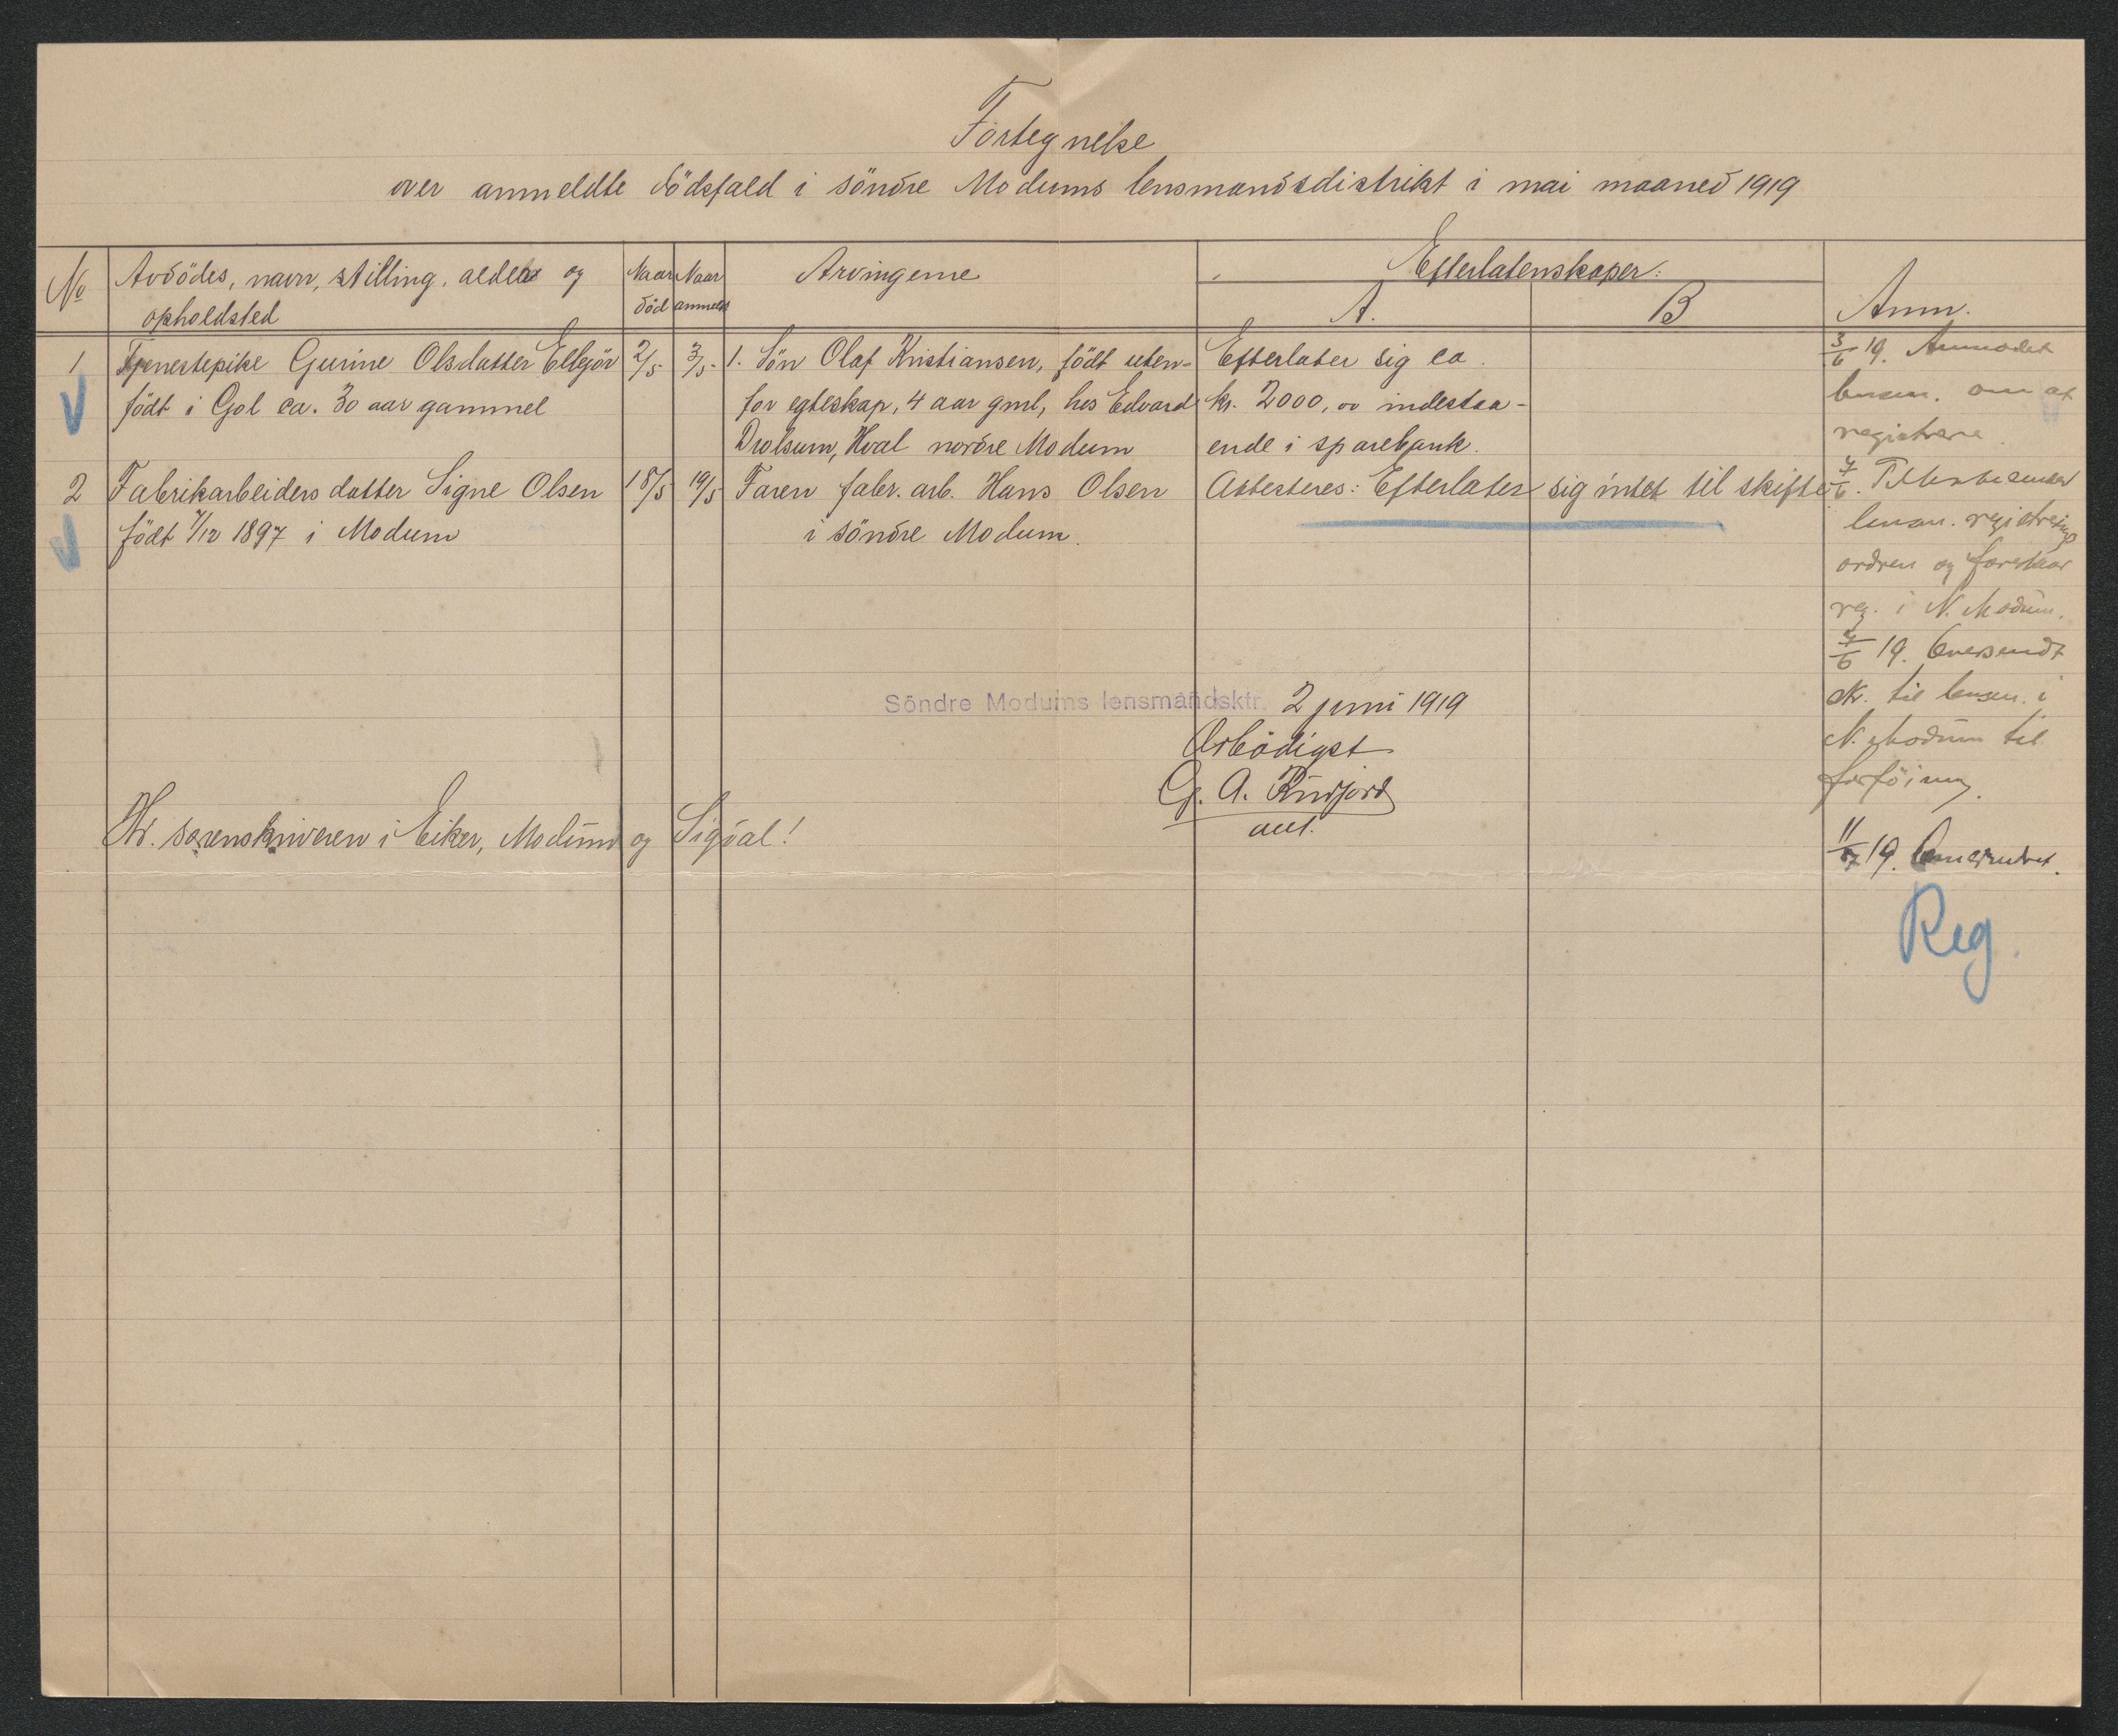 Fortegnelse
over anmeldte dödsfald i söndre Modums lensmandsdistrikt i mai maaned 1919
No
Avdödes, navn, stilling, alder og
opholdsted
Naar
död
Naar
anmeldt
Arvingerne
Efterlatenskaper:
A.
B
Anm.
1
Tjenestepike Gurine Olsdatter
født i Gol ca. 30 aar gammel
2/5
3/5
1. Sön Olaf Kristiansen, födt uten-
for egteskap, 4 aar gml, hos Edvard
Drolsum, Hval nordre Modum
Efterlater sig ca.
kr. 2000, oo indestaa-
ende i sparebank.
2
Fabrikarbeiders datter Signe Olsen
födt 7/12 1897 i Modum
18/5
19/5
Faren fabr. arb. Hans Olsen
i söndre Modum.
Attesteres: Efterlater sig intet til skifte.
3/6 19. Anmodet
lensm. om at
registrere.
7/6.
lensm. registrerings
ordren og
reg. i N. Modum.
7/6 19. Oversendt
sk. til lensm. i
N. Modum til
forföining.
11/7 19.
Reg.
Söndre Modums lensmandsktr. 2 juni 1919
Ærbödigst
G. A.
aut.
Hr. sorenskriveren i Eiker, Modum og Sigdal!